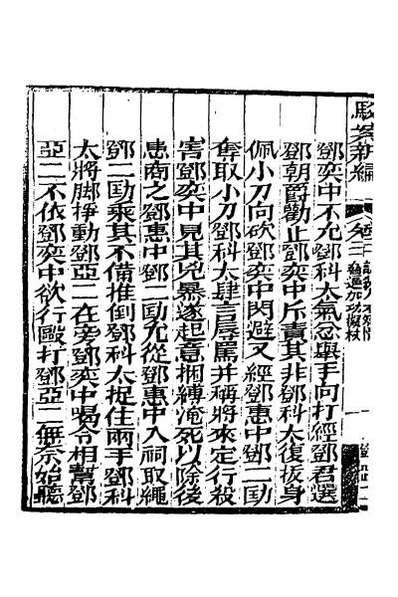 駁案新編
卷二
鄧奕中不允鄧科太氣忿舉手向打經鄧君選
鄧朝爵勸止鄧奕中斥責其非鄧科太復拔身
佩小刀向砍鄧奕中閃避又經鄧惠中鄧二勐
奪取小刀鄧科太肆言辱罵并稱將來定行殺
害鄧奕中見其兇暴遂起意捆縛淹死以除後
患商之鄧惠中鄧二勐允從鄧惠中入祠取繩
鄧二勐乘其不備推倒鄧科太捉住兩手鄧科
太將脚掙動鄧亞二在旁鄧奕中喝令相幫鄧
亞二不依鄧奕中欲行毆打鄧亞二無奈始聽